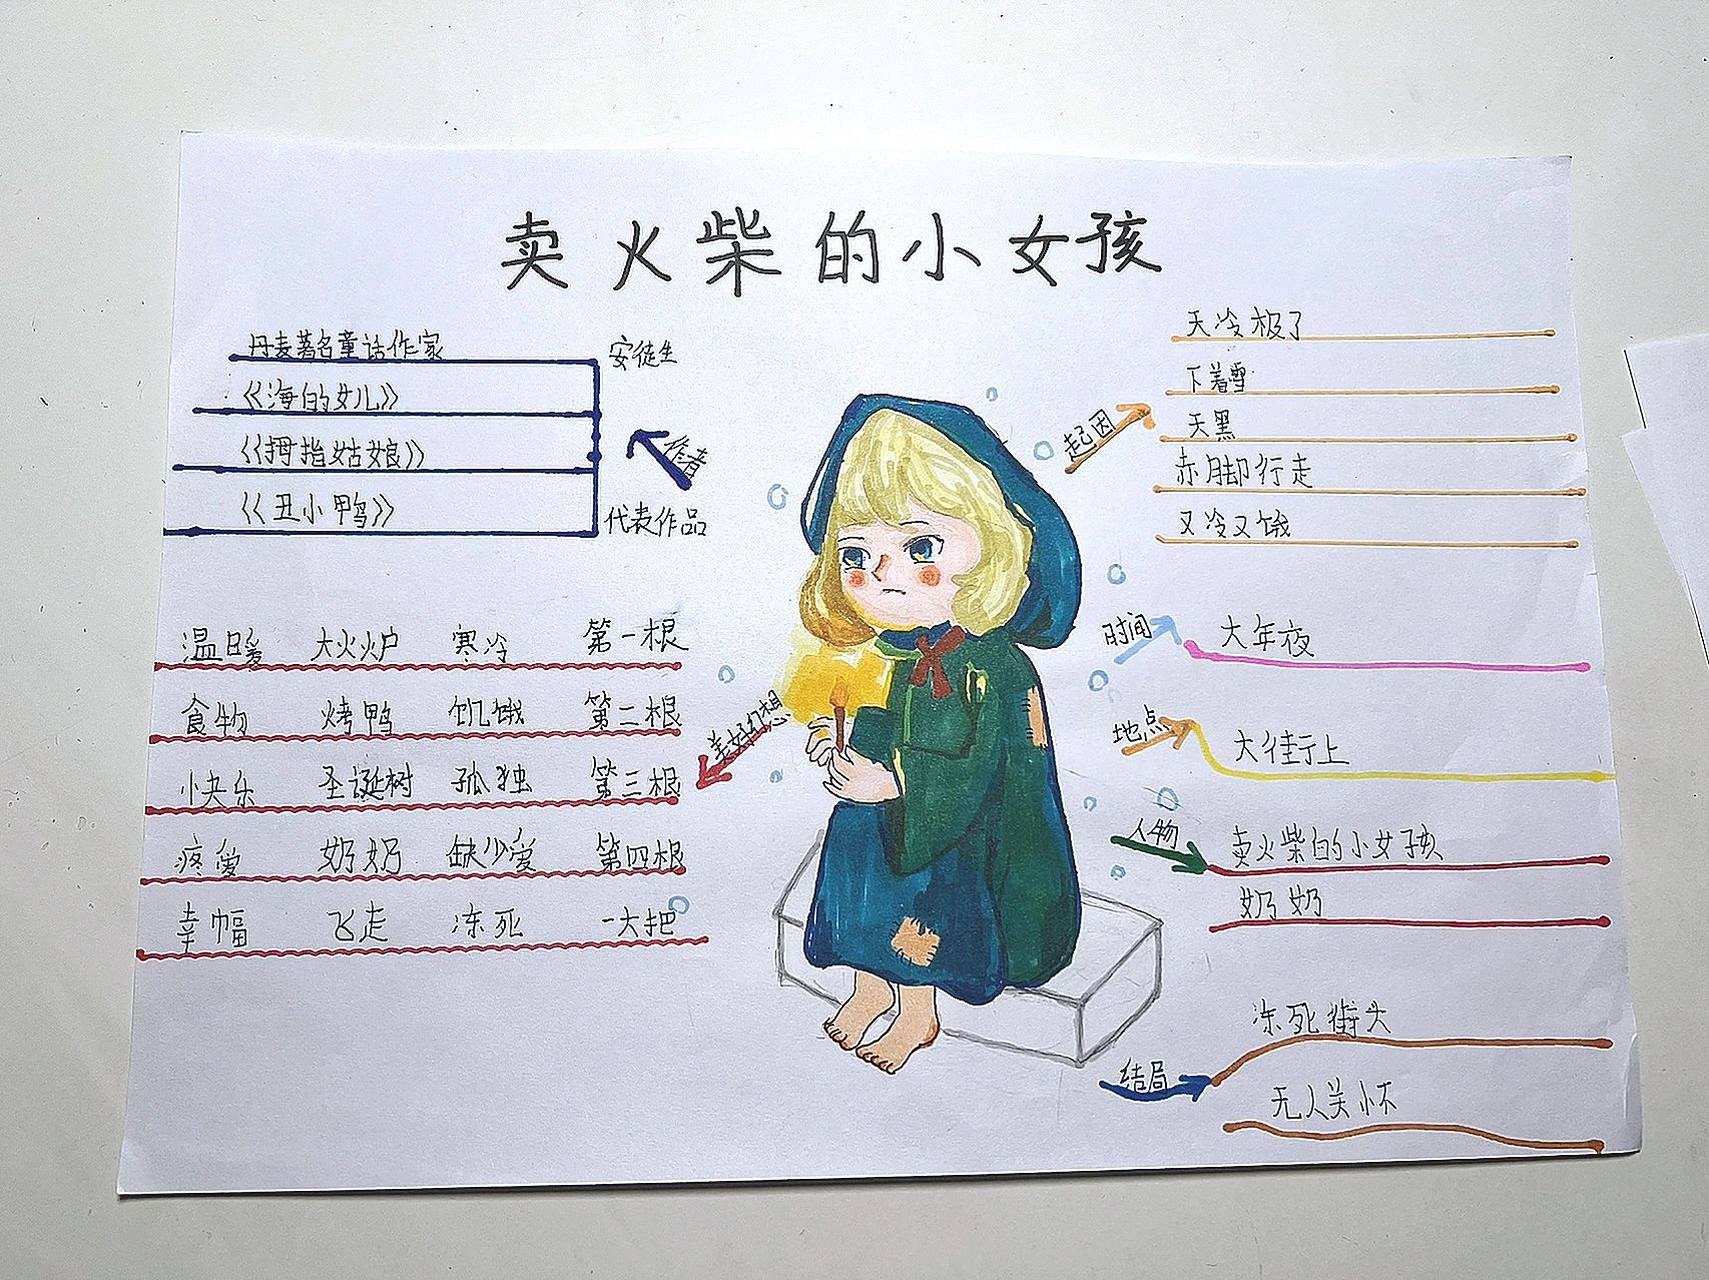 卖火柴的小女孩
丹麦著名童话作家 安徒生
《海的女儿》
《拇指姑娘》
《丑小鸭》 代表作品
作者
温暖 大火炉 寒冷 第一根
食物 烤鸭 饥饿 第二根
快乐 圣诞树 孤独 第三根
疼爱 奶奶 缺少爱 第四根
幸幅 飞走 冻死 一大把
美好幻想
起因
天冷极了
下着雪
天黑
赤脚行走
又冷又饿
时间 大年夜
地点 大街上
人物 卖火柴的小女孩
奶奶
结局 冻死街头
无人关怀